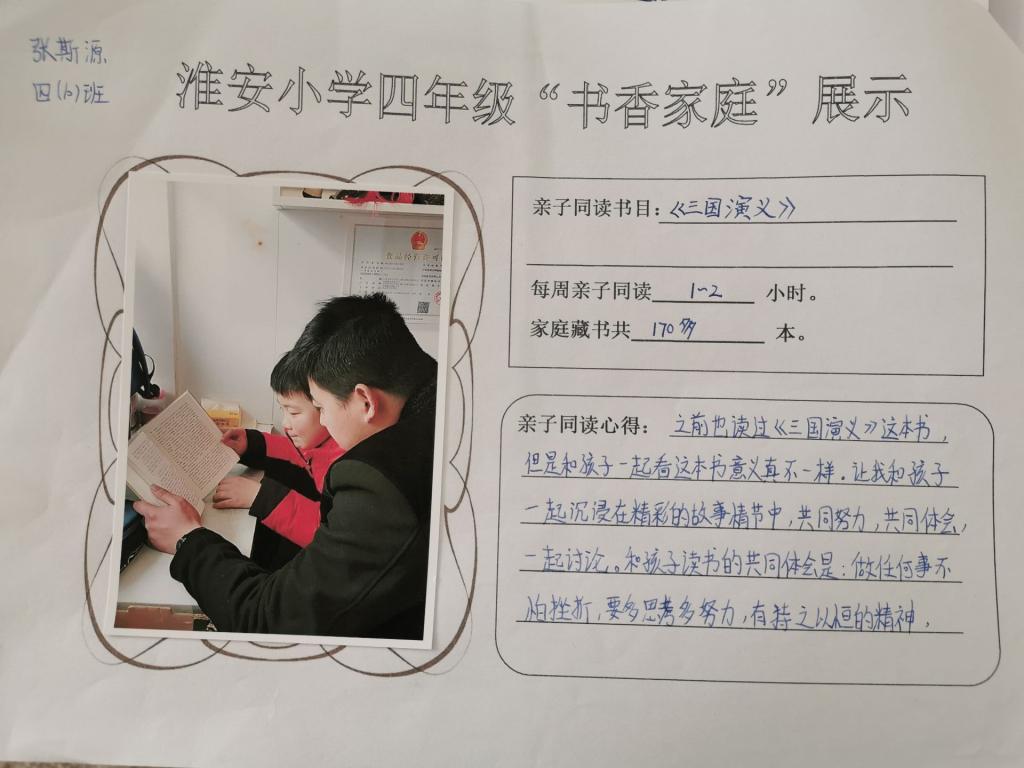 张斯源
四(6)班
淮安小学四年级“书香家庭”展示
食品经营许可
亲子同读书目：《三国演义》
每周亲子同读 1~2 小时。
家庭藏书共 170多 本。
亲子同读心得： 之前也读过《三国演义》这本书，
但是和孩子一起看这本书意义真不一样。让我和孩子
一起沉浸在精彩的故事情节中，共同努力，共同体会，
一起讨论。。和孩子读书的共同体会是：做任何事不
怕挫折，要多思考多努力，有持之以恒的精神，